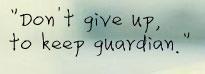 "Don't give up,
to keep guardian."